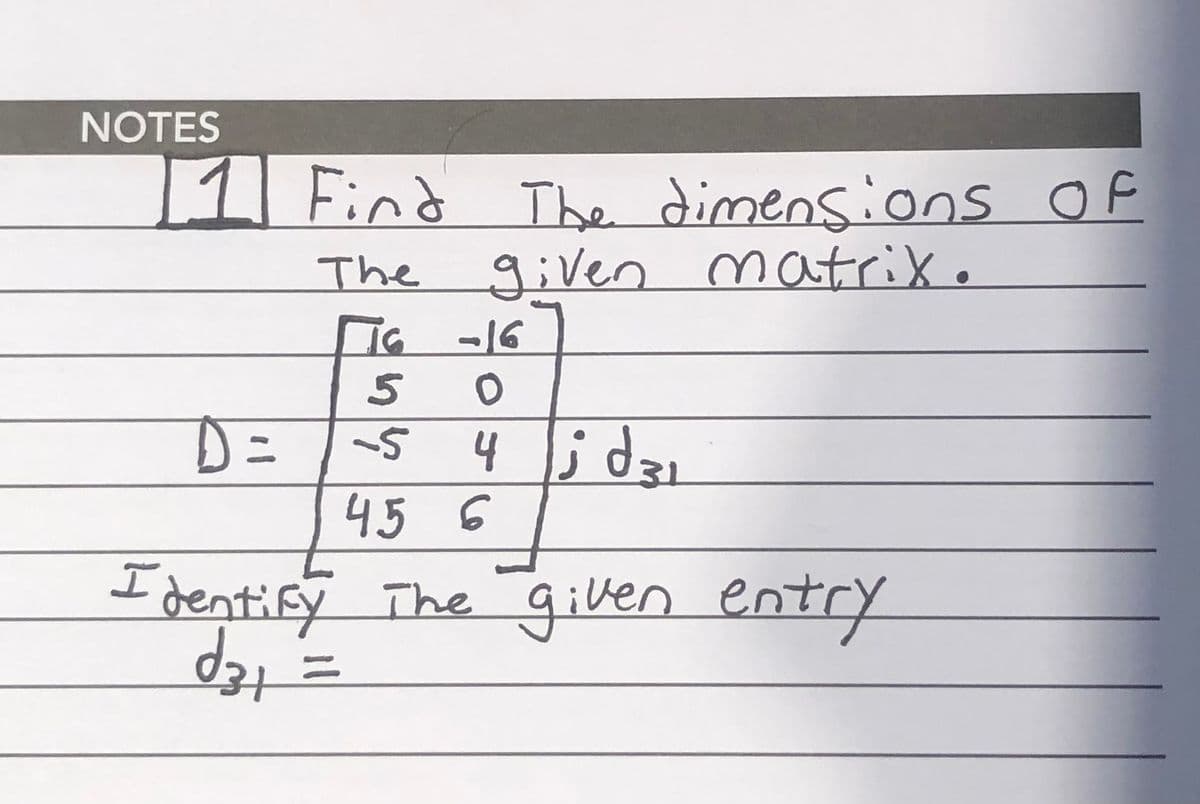 NOTES
1 Find The dimensions of
The given matrix.
16 -16
5 0
D = -5 4 ; d31
45 6
Identify The given entry
d31 =